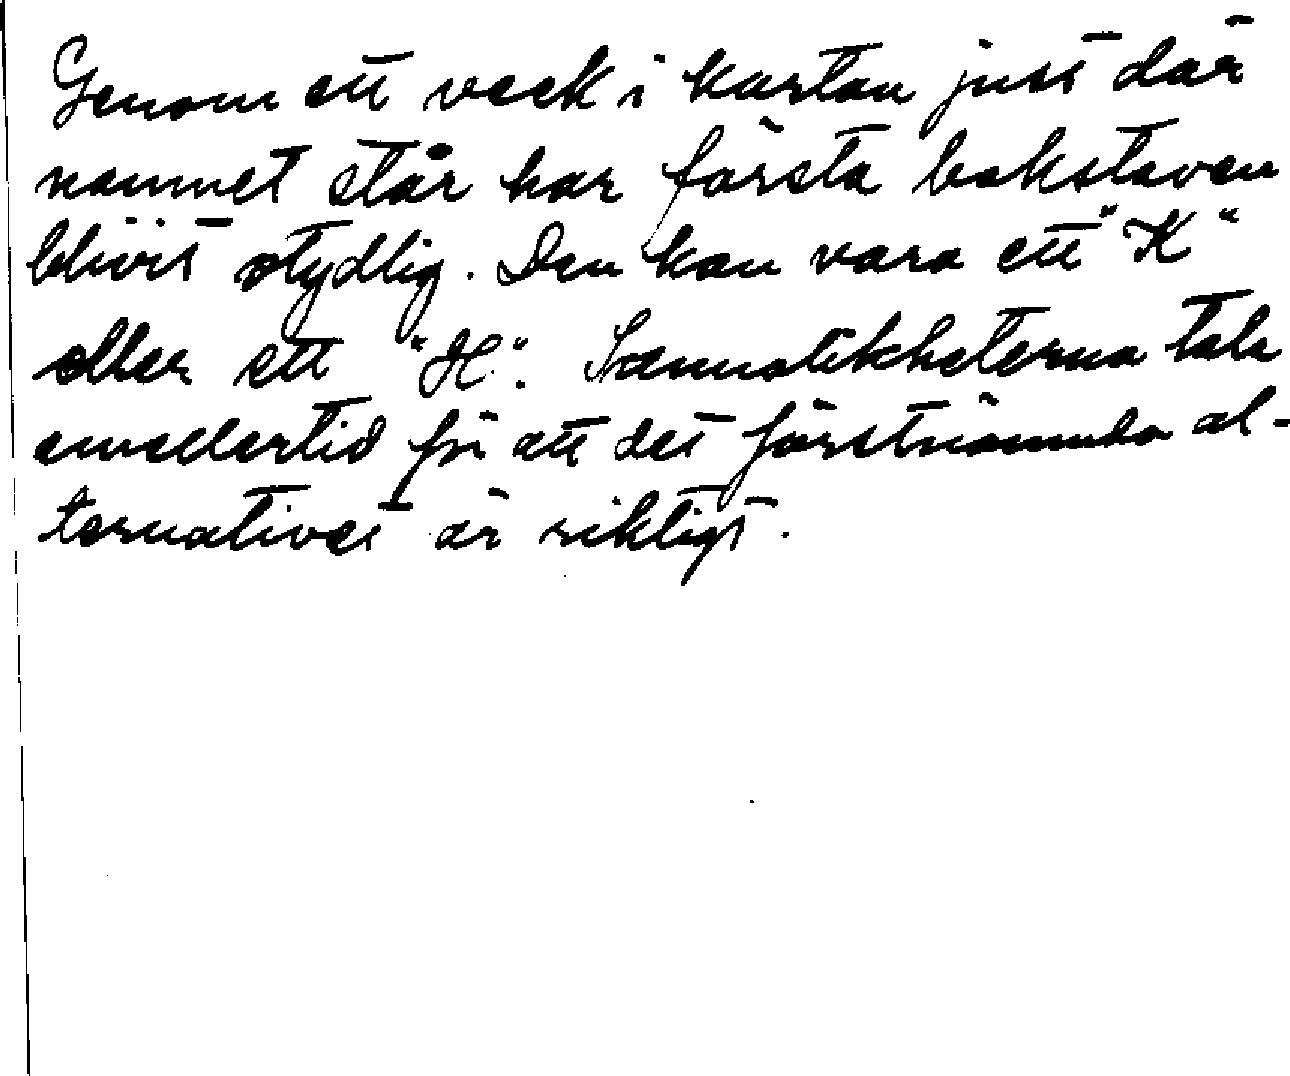 Genom ett veck i kartan just där
namnet står har första bokstaven
blivit otydlig. Den kan vara ett "K"
eller ett "H". Sannolikheterna tala
emellertid för att det förstnämnda al-
ternativet är riktigt.